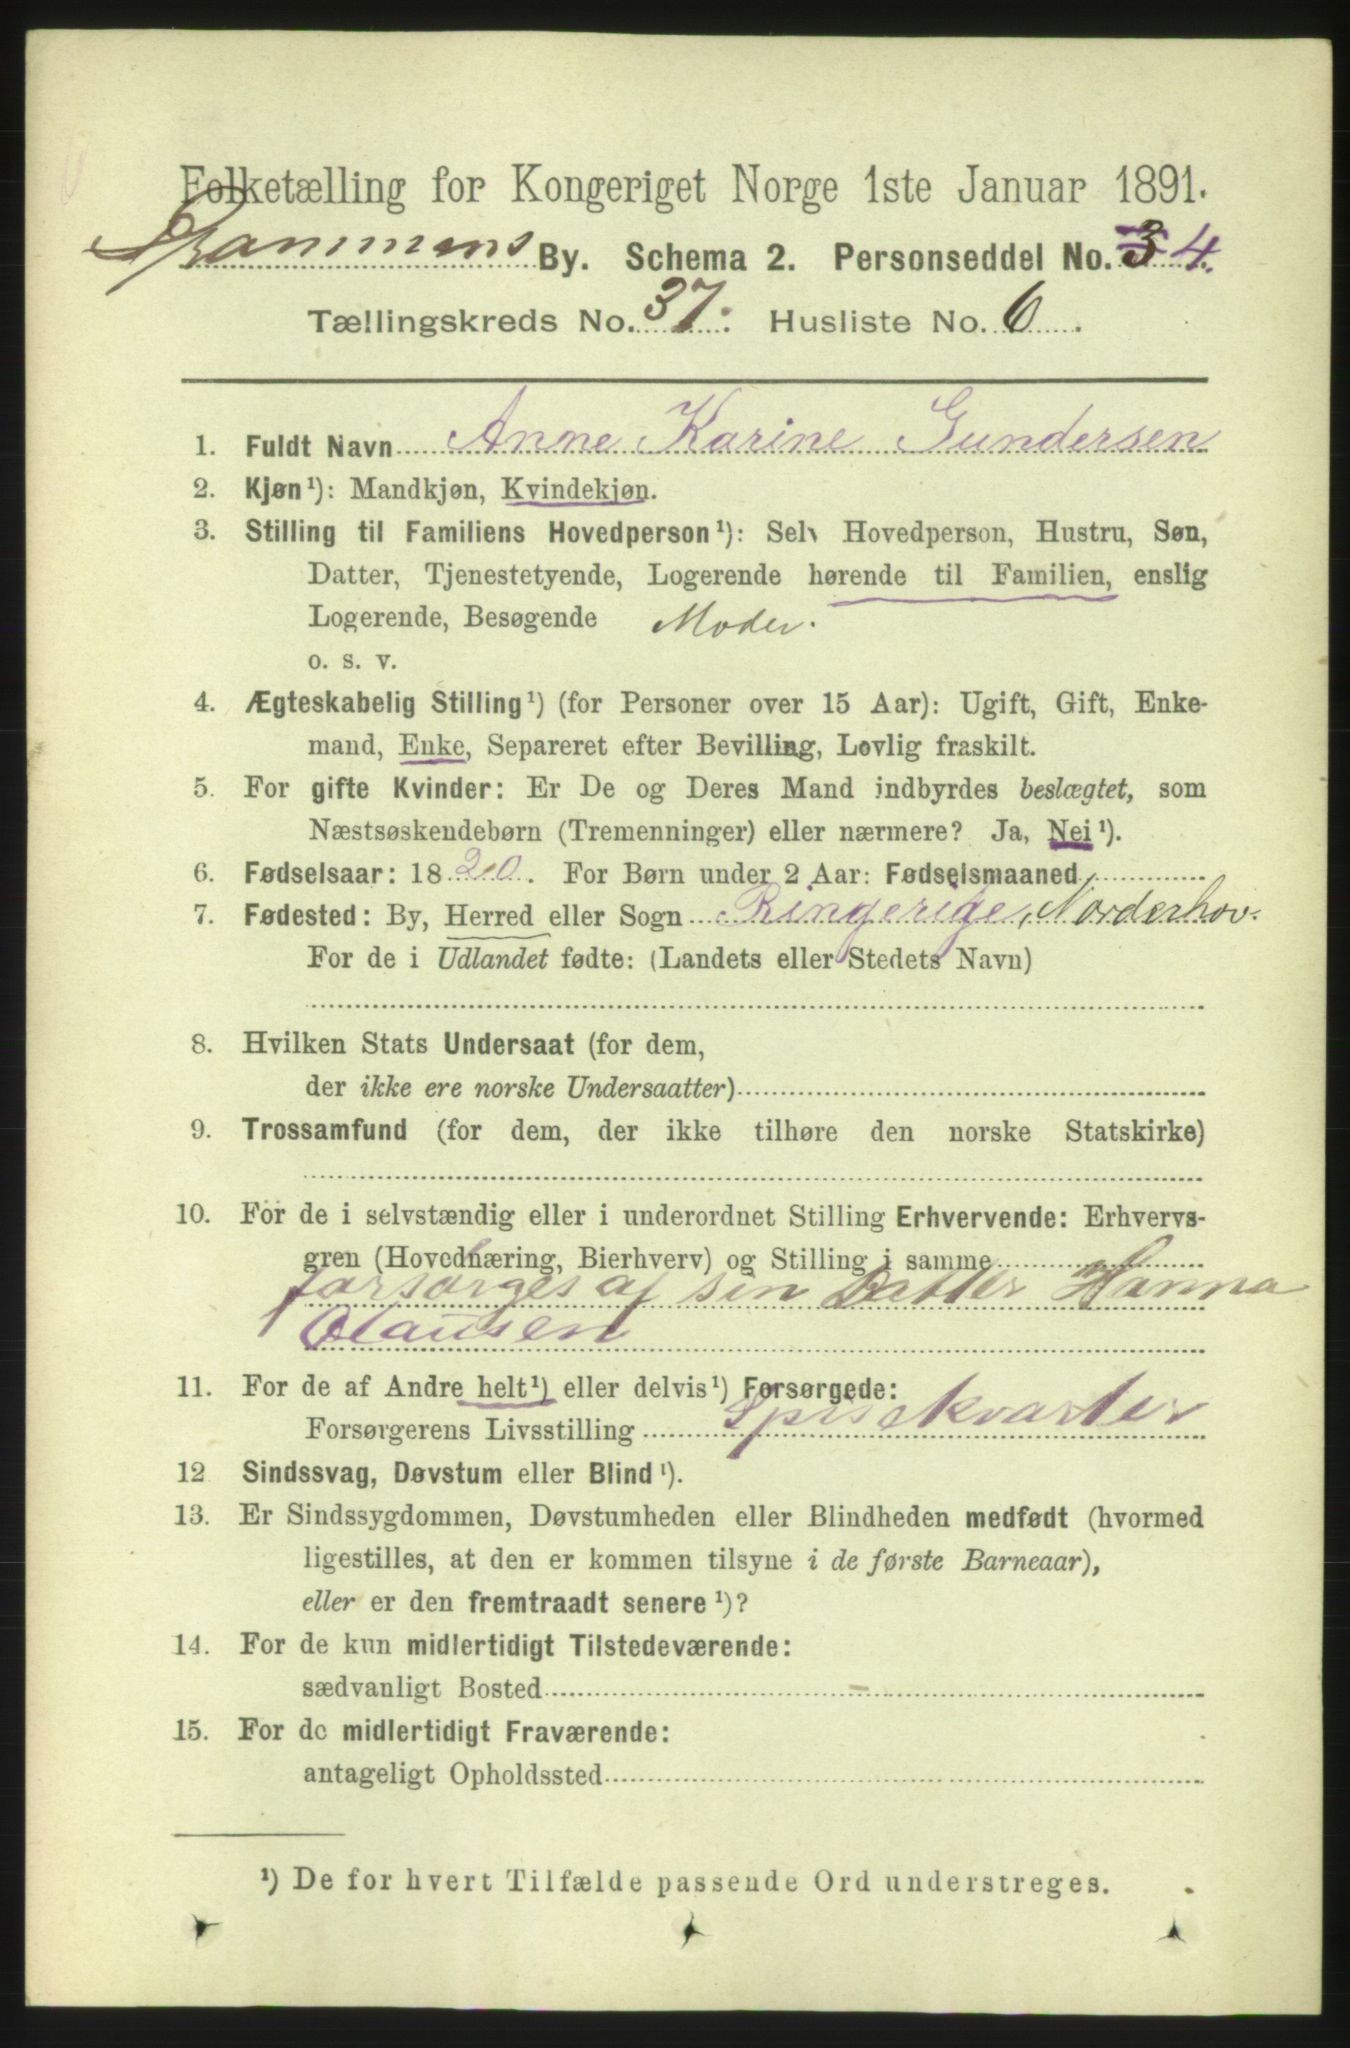 Folketælling for Kongeriget Norge 1ste Januar 1891.
Drammens By. Schema 2. Personseddel No. 3 4.
Tællingskreds No. 37. Husliste No. 6.
1. Fuldt Navn Anne Karine Gundersen
2. Kjøn¹): Mandkjøn, Kvindekjøn.
3. Stilling til Familiens Hovedperson¹): Selv Hovedperson, Hustru, Søn,
Datter, Tjenestetyende, Logerende hørende til Familien, enslig
Logerende, Besøgende Moder.
o. s. v.
4. Ægteskabelig Stilling¹) (for Personer over 15 Aar): Ugift, Gift, Enke-
mand, Enke, Separeret efter Bevilling, Lovlig fraskilt.
5. For gifte Kvinder: Er De og Deres Mand indbyrdes beslægtet, som
Næstsøskendebørn (Tremenninger) eller nærmere? Ja, Nei¹).
6. Fødselsaar: 1820. For Børn under 2 Aar: Fødselsmaaned
7. Fødested: By, Herred eller Sogn Ringerige, Norderhov.
For de i Udlandet fødte: (Landets eller Stedets Navn)
8. Hvilken Stats Undersaat (for dem,
der ikke ere norske Undersaatter)
9. Trossamfund (for dem, der ikke tilhøre den norske Statskirke)
10. For de i selvstændig eller i underordnet Stilling Erhvervende: Erhvervs-
gren (Hovednæring, Bierhverv) og Stilling i samme
forsørges af sin Datter Hanna
Olausen
11. For de af Andre helt¹) eller delvis¹) Forsørgede:
Forsørgerens Livsstilling Spisekvarter
12 Sindssvag, Døvstum eller Blind¹).
13. Er Sindssygdommen, Døvstumheden eller Blindheden medfødt (hvormed
ligestilles, at den er kommen tilsyne i de første Barneaar),
eller er den fremtraadt senere¹)?
14. For de kun midlertidigt Tilstedeværende:
sædvanligt Bosted
15. For de midlertidigt Fraværende:
antageligt Opholdssted
¹) De for hvert Tilfælde passende Ord understreges.